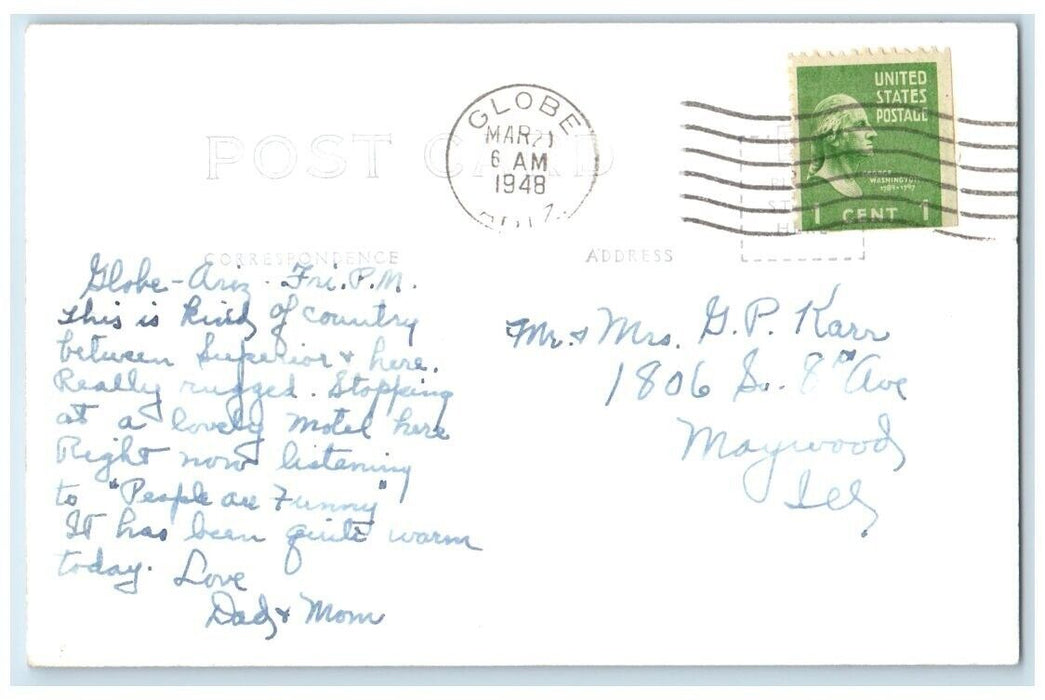 GLOBE
MAR 21
6 AM
1948
ARIZ.
UNITED
STATES
POSTAGE
GEORGE
WASHINGTON
1789-1797
1 CENT 1
POST CARD
PLACE
STAMP
HERE
CORRESPONDENCE
ADDRESS
Globe - Ariz. Fri. P.M.
This is kind of country
between Superior & here.
Really rugged. Stopping
at a lovely motel here
Right now listening
to "People are Funny"
It has been quite warm
today. Love
Dad & Mom
Mr. & Mrs. G. P. Karr
1806 So. 8th Ave
Maywood
Ill